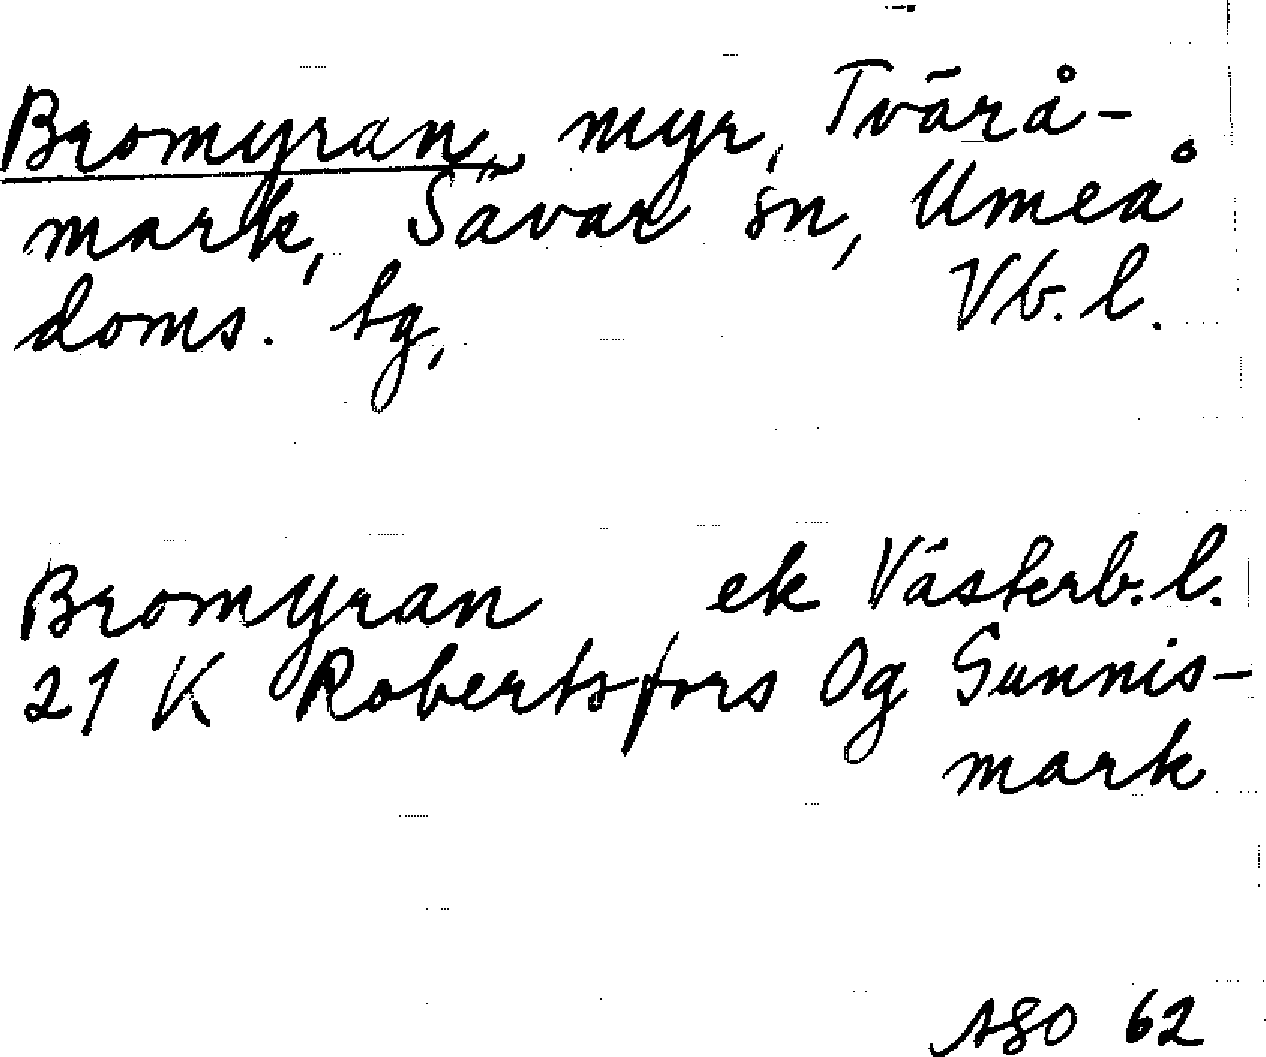 Bromyran, myr, Tvärå-
mark, Sävar sn, Umeå
doms. tg, Vb. l.
Bromyran ek Västerb. l.
21 K Robertsfors Og Gunnis-
mark
ASO 62